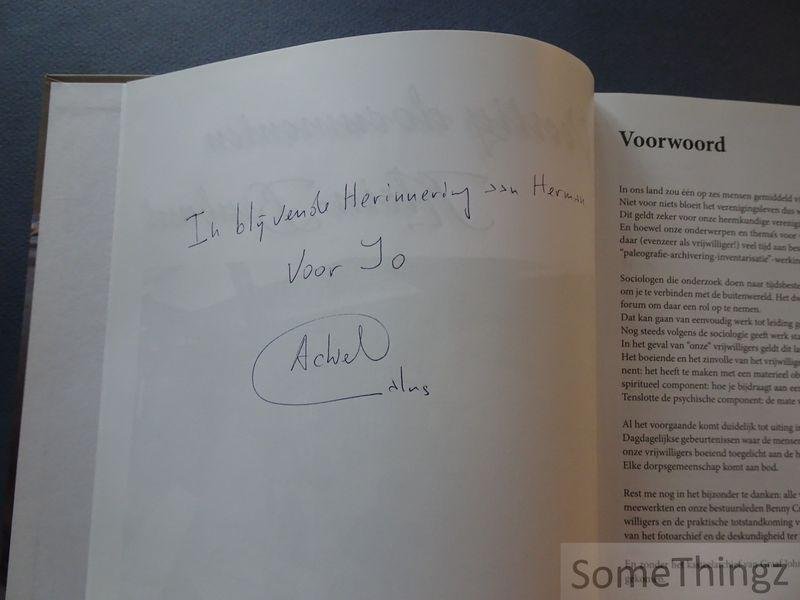 In blijvende Herinnering aan Herman
Voor Jo
Achiel
Voorwoord
In ons land zou één op zes mensen gemiddeld
Niet voor niets bloeit het verenigingsleven dus
Dit geldt zeker voor onze heemkundige
En hoewel onze onderwerpen en thema's voor
daar (evenzeer als vrijwilliger!) veel tijd aan
"paleografie-archivering-inventarisatie"
Sociologen die onderzoek doen naar
om je te verbinden met de buitenwereld. Het
forum om daar een rol op te nemen.
Dat kan gaan van eenvoudig werk tot leiding
Nog steeds volgens de sociologie geeft werk
In het geval van "onze" vrijwilligers geldt dit
Het boeiende en het zinvolle van het
nent: het heeft te maken met een materieel
spiritueel component: hoe je bijdraagt aan
Tenslotte de psychische component: de mate
Al het voorgaande komt duidelijk tot uiting
Dagdagelijkse gebeurtenissen waar de
onze vrijwilligers boeiend toegelicht aan de
Elke dorpsgemeenschap komt aan bod.
Rest me nog in het bijzonder te danken:
meewerkten en onze bestuursleden Benny
willigers en de praktische totstandkoming
van het fotoarchief en de deskundigheid ter
SomeThingz